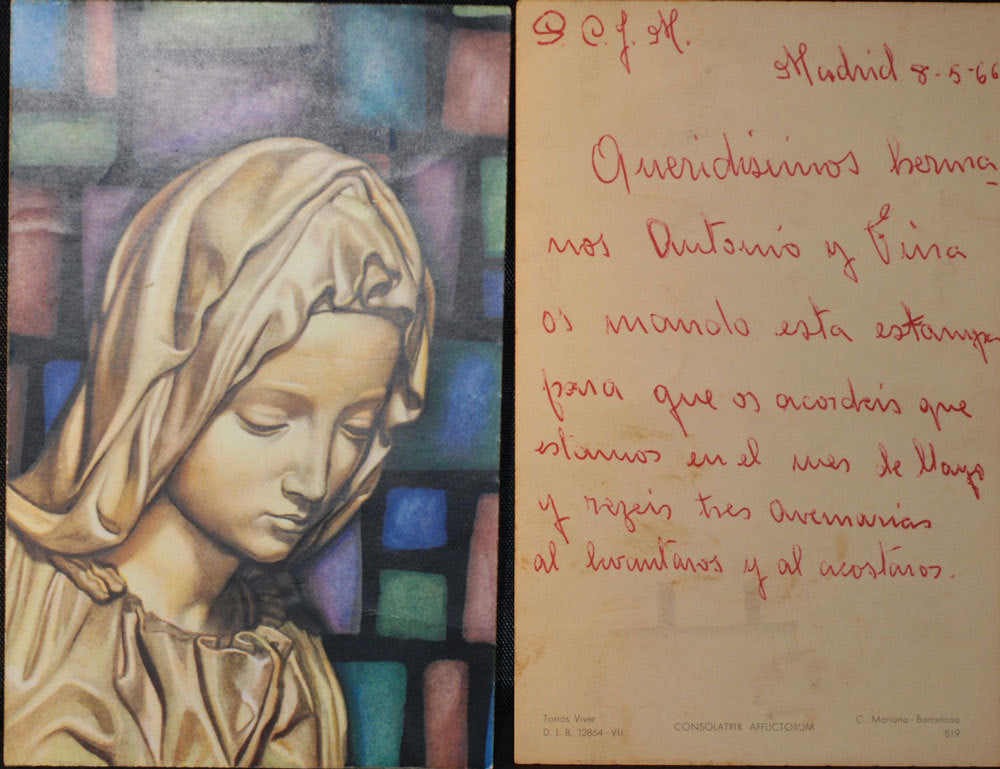 D. C. J. M.
Madrid 8-5-66
Queridisimos herma-
nos Antonio y Fina
os mando esta estampa
para que os acordeis que
estamos en el mes de Mayo
y rezeis tres avemarias
al levantaros y al acostáros.
Torras Viver
D. L. B. 12864 - VII
CONSOLATRIX AFFLICTORUM
C. Mariana - Barcelona
819